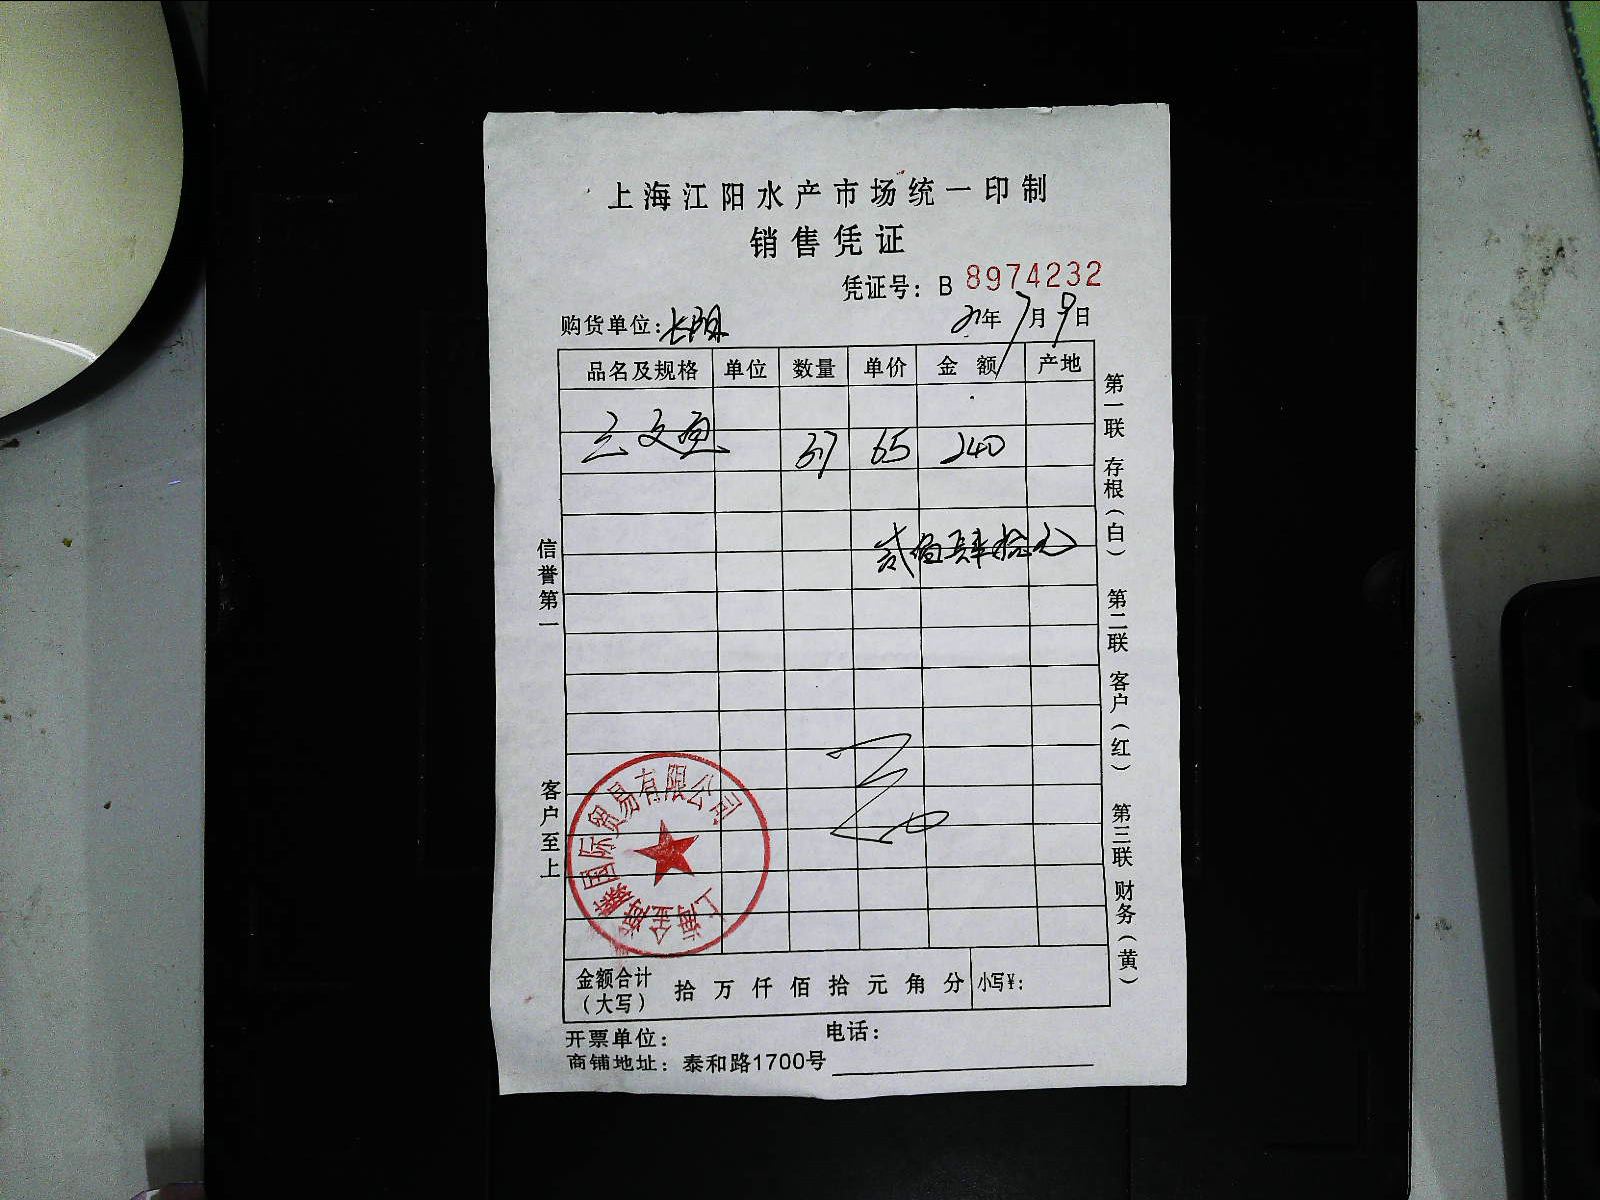 上海江阳水产市场统一印制
销售凭证
凭证号：B 8974232
购货单位： 21年7月9日
品名及规格 单位 数量 单价 金额 产地
三文鱼 3.7 65 240
贰佰肆拾元
信誉第一
客户至上
第一联 存根（白） 第二联 客户（红） 第三联 财务（黄）
上海金海泰国际贸易有限公司
金额合计（大写） 拾 万 仟 佰 拾 元 角 分 小写¥：
开票单位： 电话：
商铺地址：泰和路1700号